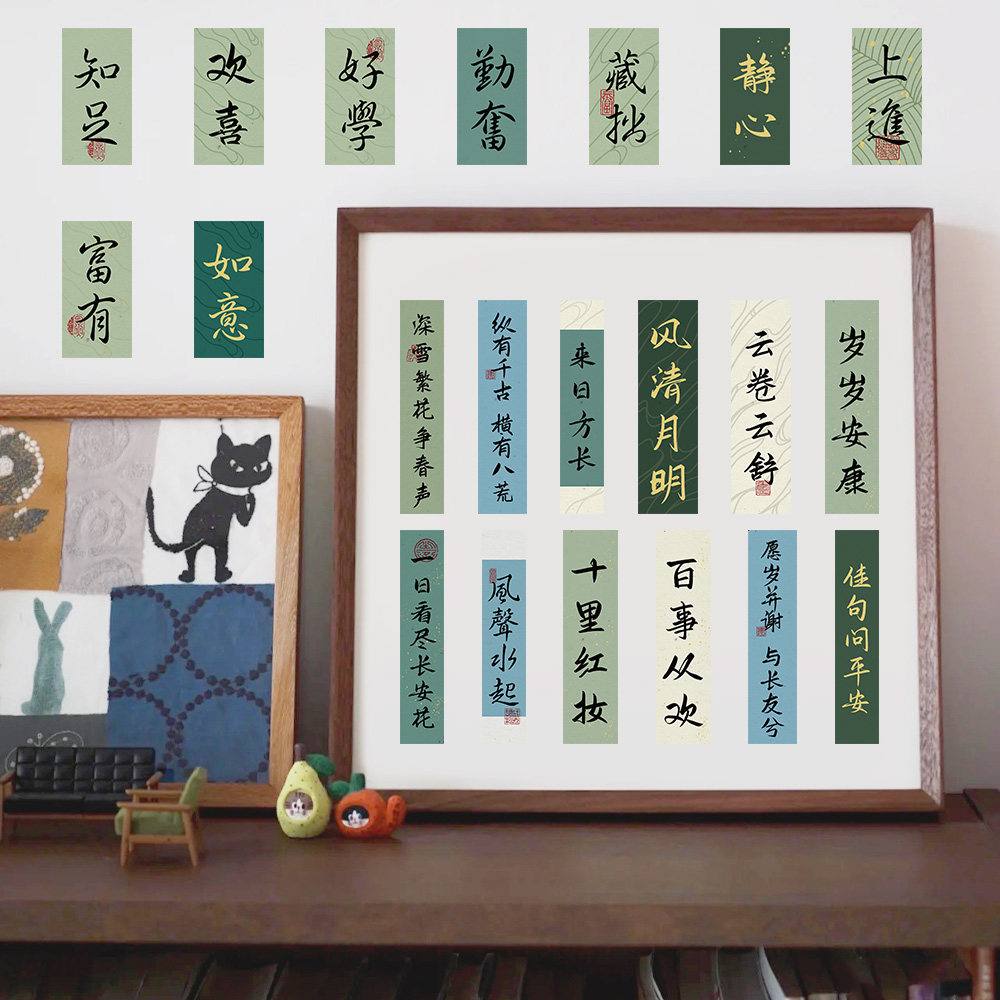 知足
欢喜
好學
勤奮
藏拙
静心
上進
富有
如意
深雪繁花争春声
纵有千古 横有八荒
来日方长
风清月明
云卷云舒
岁岁安康
一日看尽长安花
風聲水起
十里红妆
百事从欢
愿岁并谢 与长友兮
佳句问平安